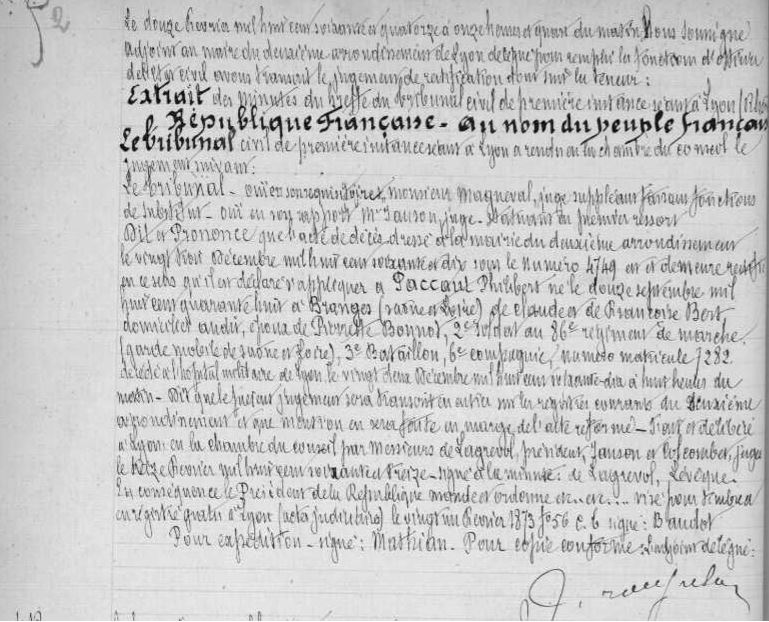 52
Le douze Février mil huit cent soixante et quatorze à onze heures et quart du matin, Nous soussigné
adjoint au maire du deuxième arrondissement de Lyon délégué pour remplir les fonctions d'officier
de l'état civil avons transcrit le jugement de ratification dont suit la teneur :
Extrait des minutes du Greffe du tribunal civil de première instance séant à Lyon (Rhône
République Française - au nom du peuple français
Le tribunal civil de première instance séant à Lyon a rendu en la chambre du conseil le
jugement suivant :
Le tribunal - ouï en son réquisitoire, monsieur Magneval, juge suppléant faisant fonctions
de substitut - ouï en son rapport Mr Janson, juge - statuant en premier ressort
Dit et Prononce que l'acte de décès dressé à la mairie du deuxième arrondissement
le vingt trois Décembre mil huit cent soixante et dix sous le numéro 4749 est et demeure rectifié
en ce sens qu'il est déclaré s'appliquer à Paccaut Philibert né le douze septembre mil
huit cent quarante huit à Branges (saône et Loire) de Claude et de Françoise Bert,
domicilié audit, époux de Pierrette Bonnot, 2e soldat au 86e régiment de marche,
(garde mobile de saône et Loire), 3e Bataillon, 6e compagnie, numéro matricule 7282
décédé à l'hôpital militaire de Lyon, le vingt deux Décembre mil huit cent soixante-dix à huit heures du
matin - Dit que le présent jugement sera transcrit en entier sur les registres courants du deuxième
arrondissement et que mention en sera faite en marge de l'acte réformé - Fait et délibéré
à Lyon en la chambre du conseil par Messieurs de Lagrevol, président, Janson et juges
le treize Février mil huit cent soixante et treize - signé à la minute : de Lagrevol, Lévêque.
En conséquence le Président de la République mande et ordonne etc... etc... visé pour timbre et
enregistré gratis à Lyon (actes judiciaires) le vingt un Février 1873 fo 56 c. 6 signé : Baudot
Pour expédition - signé : Mathian - Pour copie conforme : L'adjoint délégué :